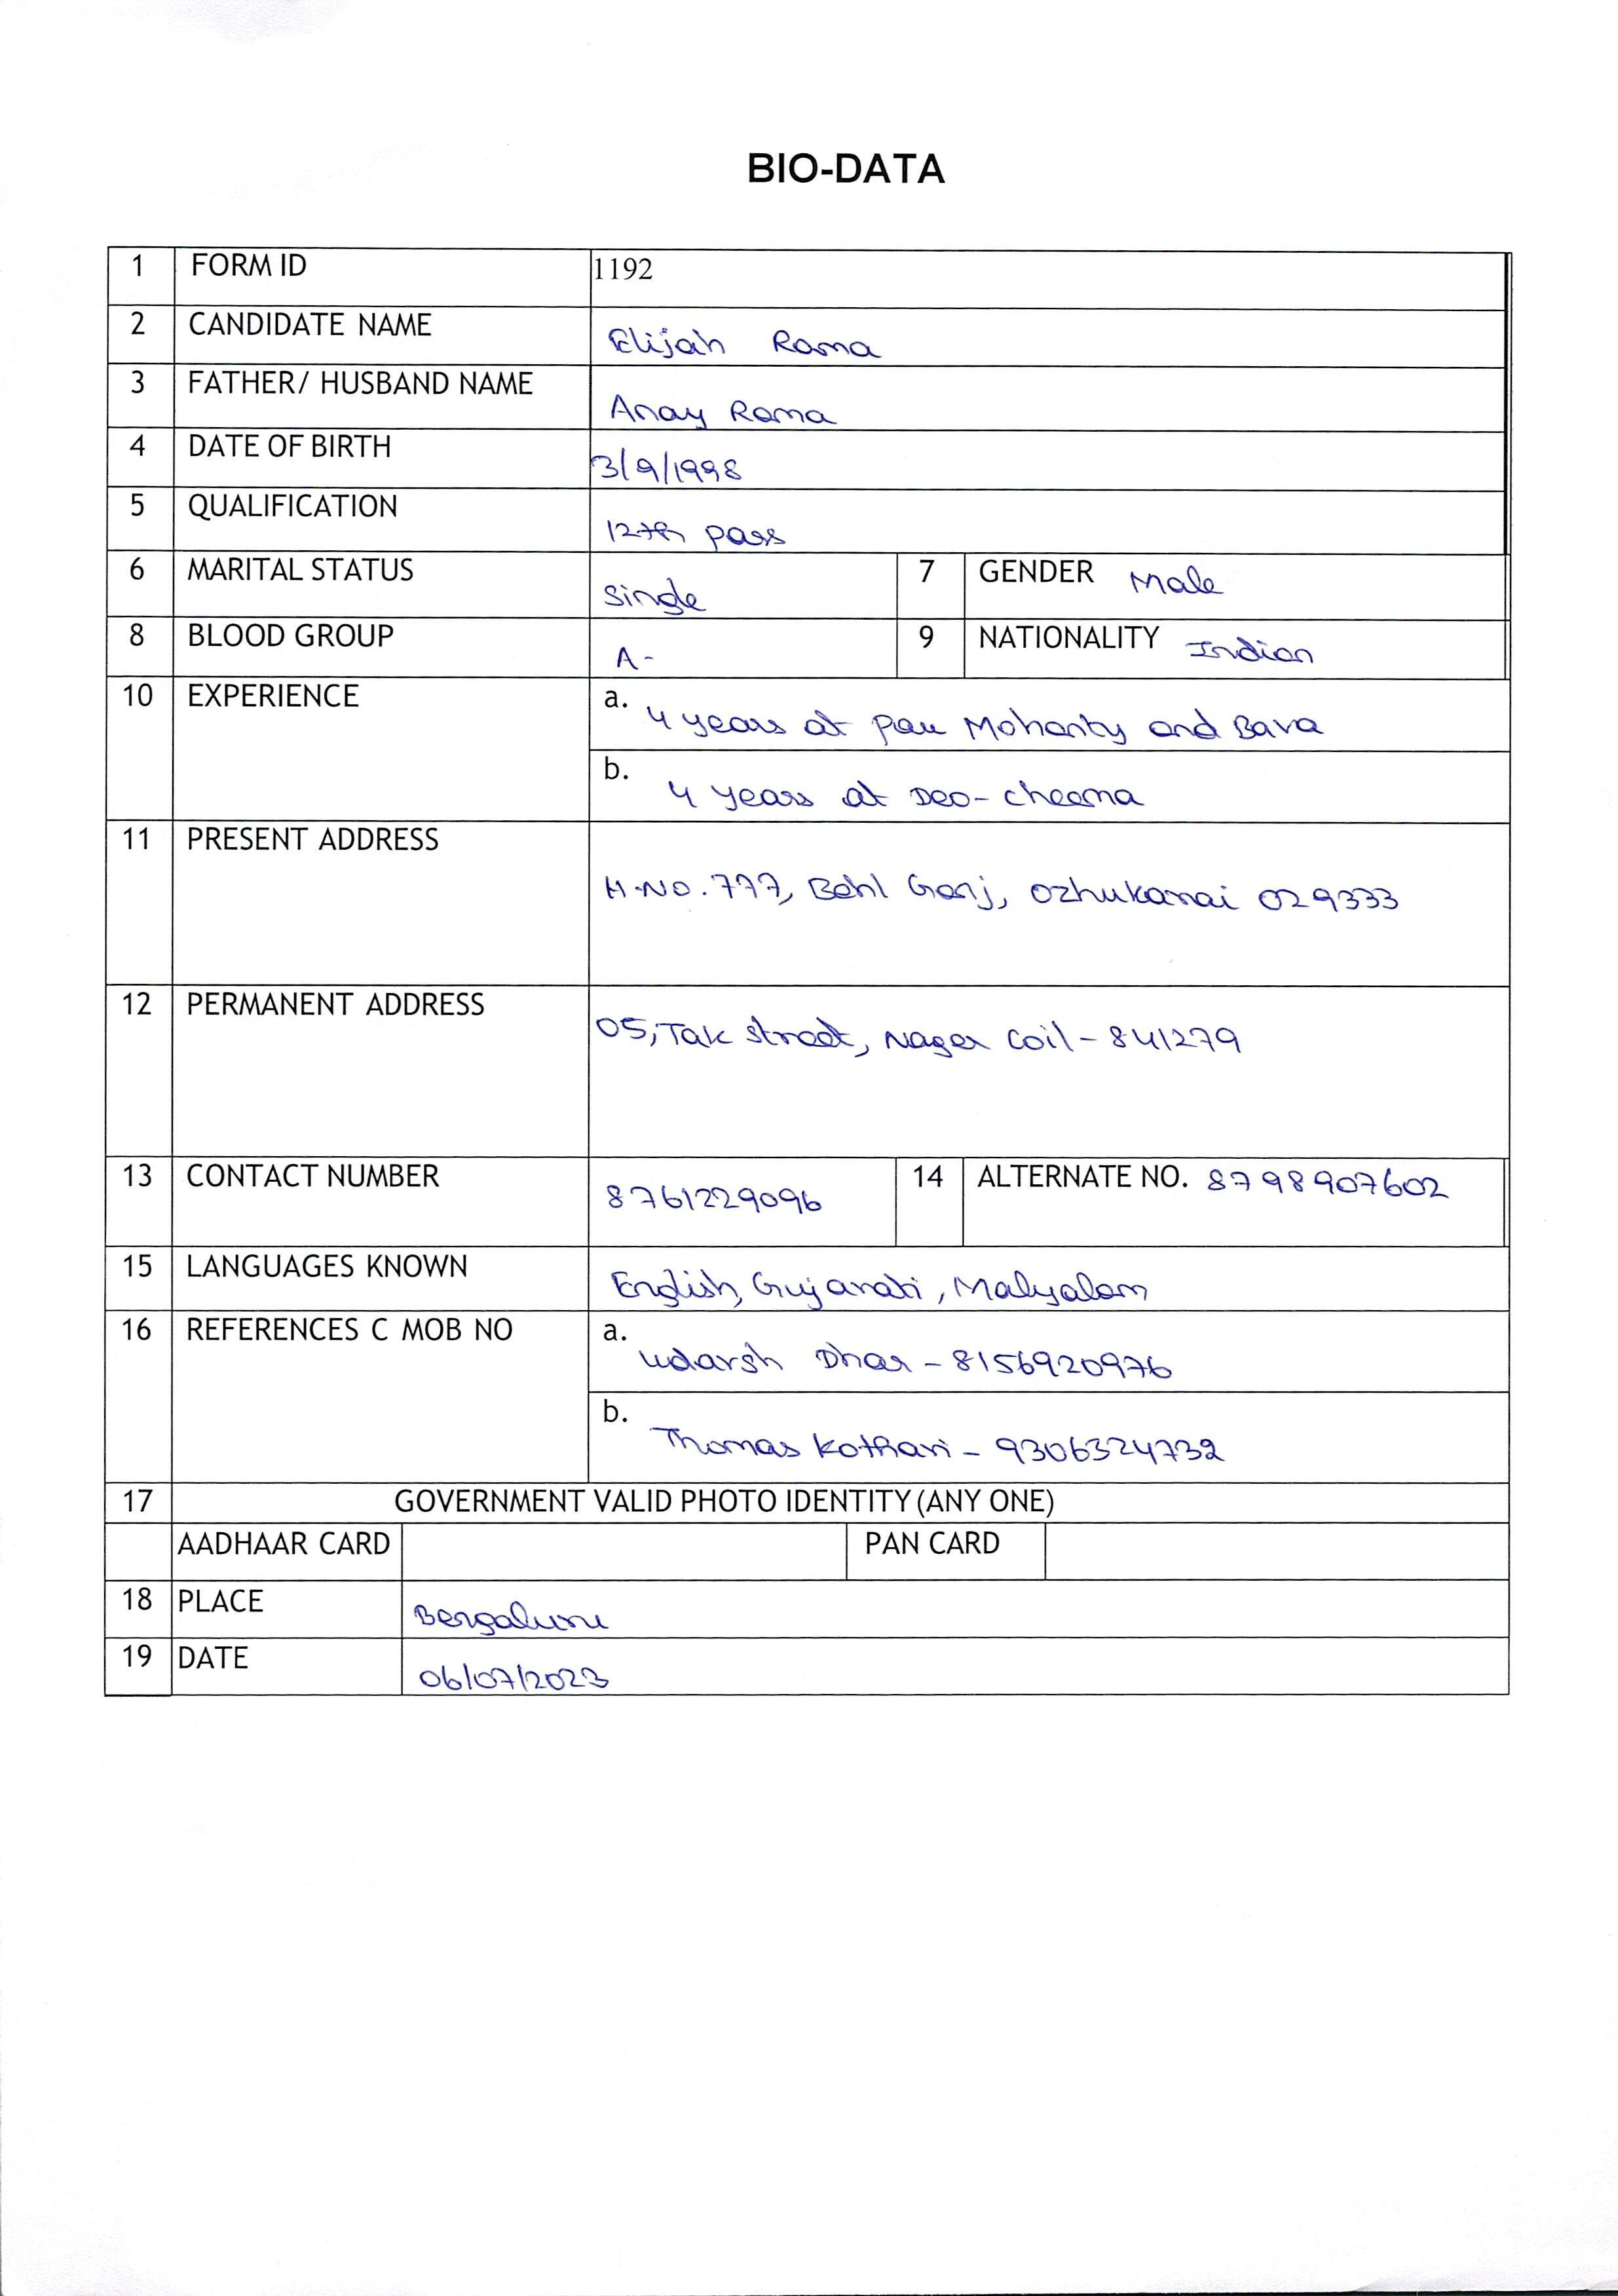 BIO-DATA
1 FORM ID 1192
2 CANDIDATE NAME Elijah Rama
3 FATHER/ HUSBAND NAME Anay Rama
4 DATE OF BIRTH 3/9/1998
5 QUALIFICATION 12th pass
6 MARITAL STATUS Single 7 GENDER Male
8 BLOOD GROUP A- 9 NATIONALITY Indian
10 EXPERIENCE a. 4 years at Pau Mohanty and Bava
b. 4 years at Deo-cheema
11 PRESENT ADDRESS H.NO.777, Behl Ganj, Ozhukarai 029333
12 PERMANENT ADDRESS 05, Tak street, Nager coil - 841279
13 CONTACT NUMBER 8761229096 14 ALTERNATE NO. 8798907602
15 LANGUAGES KNOWN English, Gujarati, Malyalam
16 REFERENCES C MOB NO a. Udarsh Dhar - 8156920976
b. Thomas Kothari - 9306324732
17 GOVERNMENT VALID PHOTO IDENTITY (ANY ONE)
AADHAAR CARD PAN CARD
18 PLACE Bengaluru
19 DATE 06/07/2023